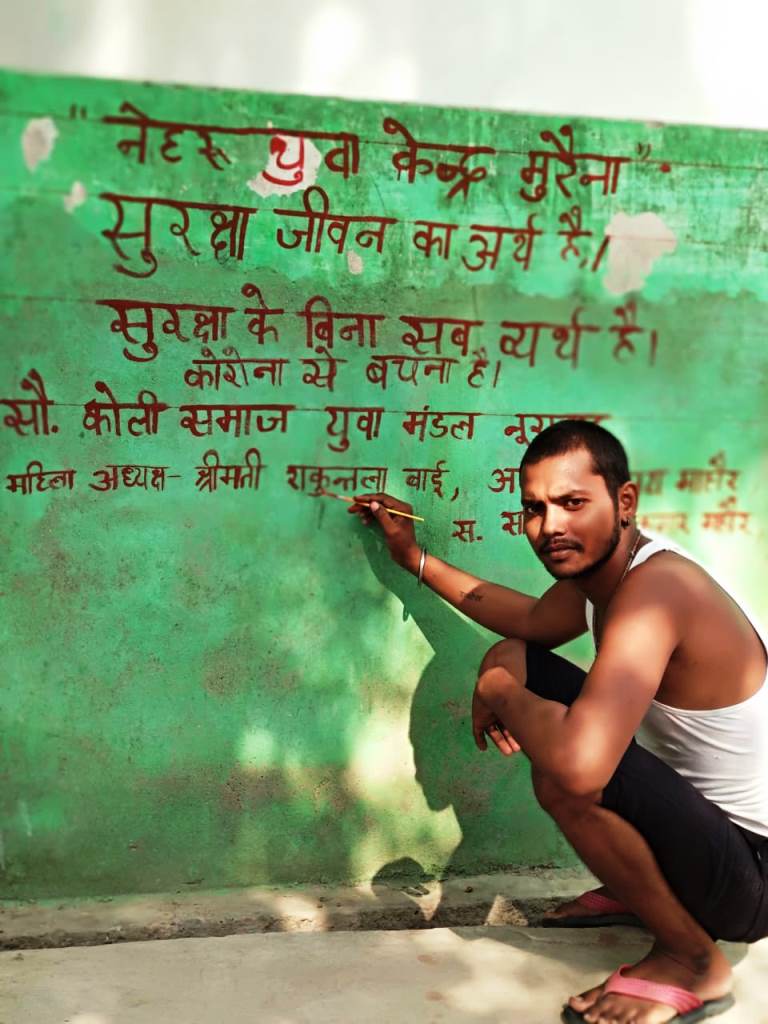 "नेहरू युवा केन्द्र मुरैना".
सुरक्षा जीवन का अर्थ है।
सुरक्षा के बिना सब व्यर्थ है।
कोरोना से बचना है।
सौ. कोली समाज युवा मंडल
महिला अध्यक्ष- श्रीमती शकुन्तला वाई, माहौर
स. माहौर